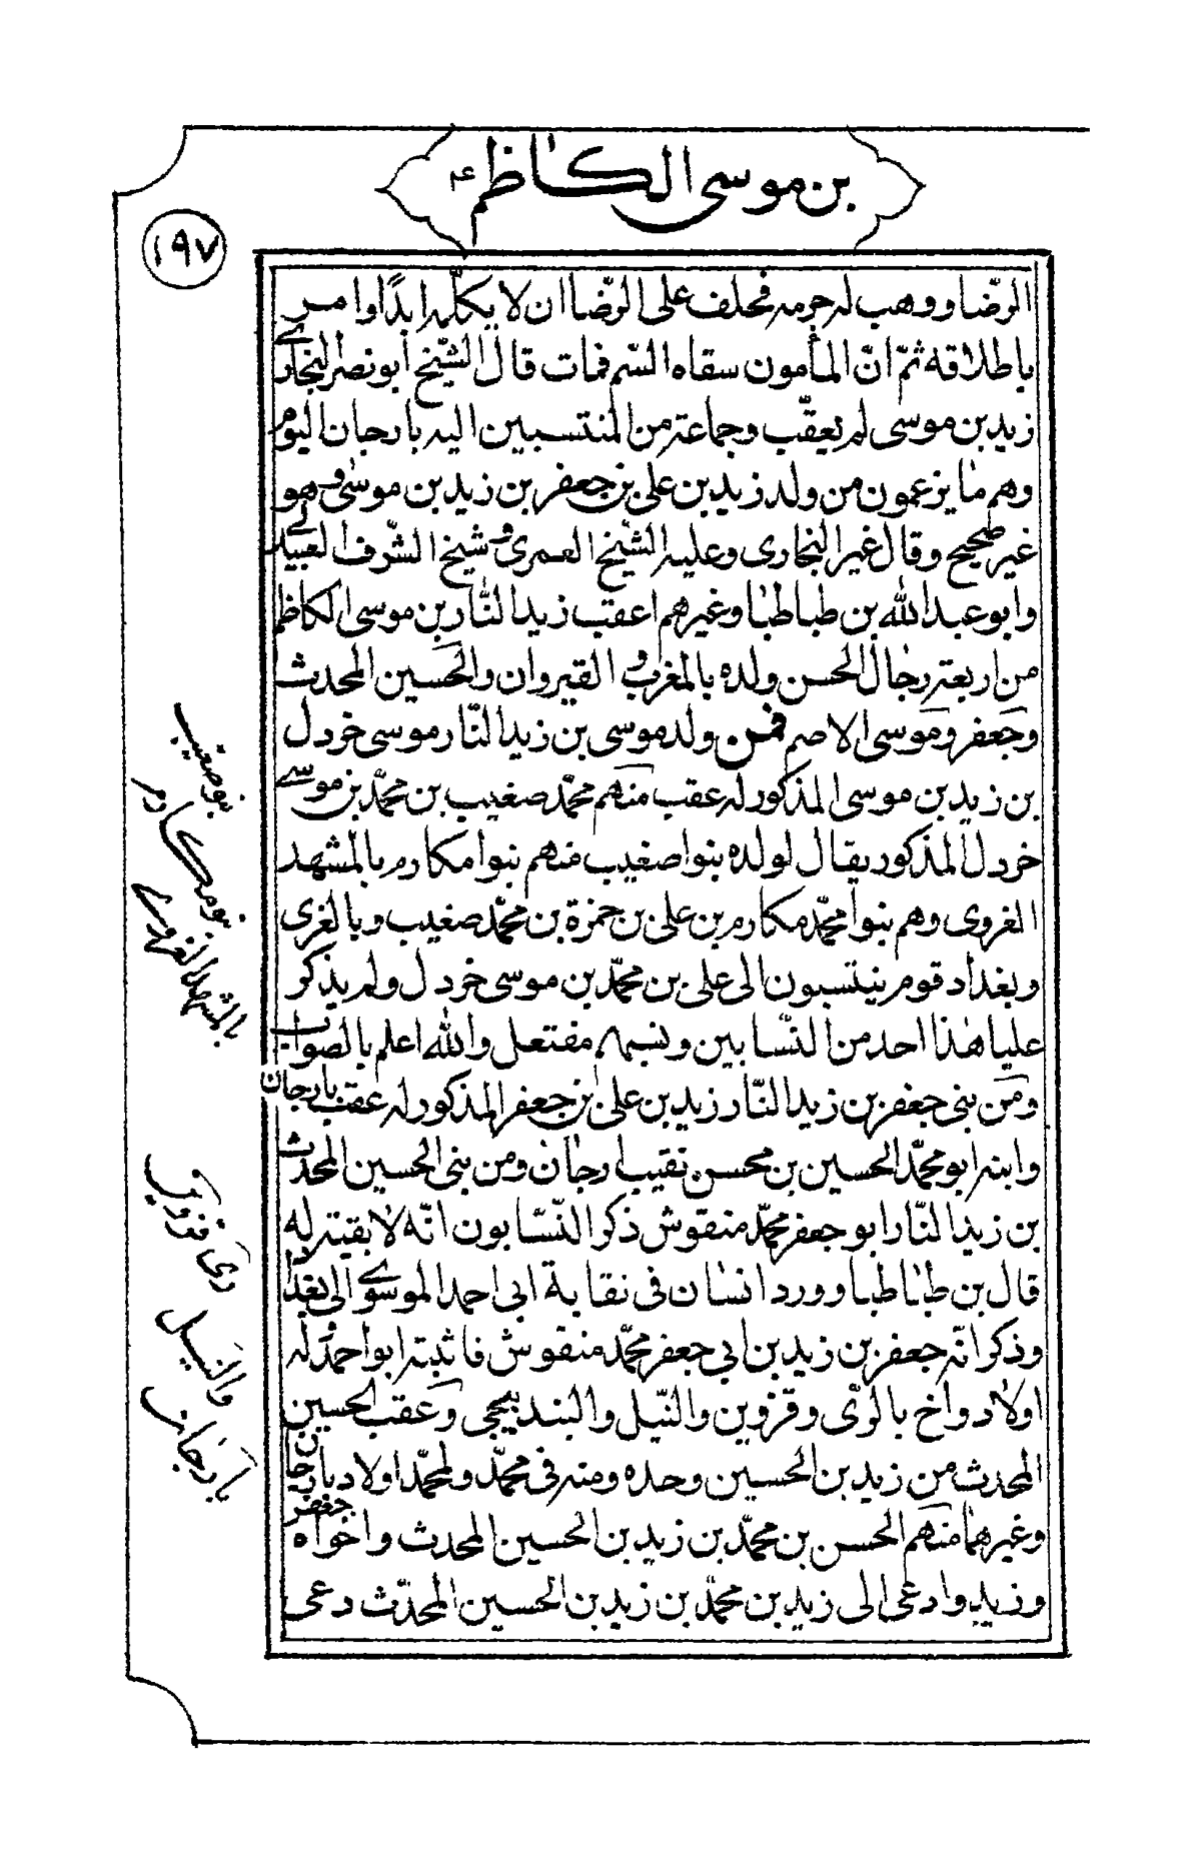 بن موسى الكاظم ع
١٩٧
الرضا ووهب له جرمه فحلف على الرضا ان لا يكلمه ابدًا وامر
باطلاقه ثمّ انّ المأمون سقاه السّم فمات قال الشيخ ابو نصر البخاري
زيد بن موسى لم يعقّب وجماعة من المنتسبين اليه بارجان اليوم
وهم ما يزعمون من ولد زيد بن على بن جعفر بن زيد بن موسى وهو
غير صحيح وقال غير البخارى وعليه الشيخ العمرى وشيخ الشّرف العبيدلي
وابو عبد الله بن طباطبا وغيرهم اعقب زيد النّار بن موسى الكاظم
من اربعة رجال الحسن ولده بالمغرب و القيروان والحسين المحدث
وجعفر وموسى الاصم فمن ولد موسى بن زيد النّار موسى خردل
بن زيد بن موسى المذكور له عقب منهم محمّد صغيب بن محمّد بن موسى
خردل المذكور يقال لولده بنوا صغيب منهم بنوا مكارم بالمشهد
الغروى وهم بنوا محمّد مكارم بن على بن حمزة بن محمّد صغيب وبالغرى
وبغداد قوم ينتسبون الى على بن محمّد بن موسى خردل ولم يذكر
عليا هذا احد من النسّابين ونسبهم مفتعل والله اعلم بالصواب
ومن بنى جعفر بن زيد النّار زيد بن على بن جعفر المذكور له عقب بارجان
وابنه ابو محمّد الحسين بن محسن نقيب ارجان ومن بنى الحسين المحدث
بن زيد النّار ابو جعفر محمّد منقوش ذكر النسّابون انّه لا بقية له
قال بن طباطبا وورد انسان فى نقابة ابى احمد الموسوي الى بغداد
وذكر انّه جعفر بن زيد بن ابي جعفر محمّد منقوش فاثبته ابو احمد وله
اولاد واخ بالرّى وقزوين والنّيل والبندبيجى وعقب الحسين
المحدث من زيد بن الحسين وحده ومنه فى محمّد ولمحمّد اولاد بارجان
وغيرها منهم الحسن بن محمّد بن زيد بن الحسين المحدث واخواه جعفر
وزيد وادعى الى زيد بن محمّد بن زيد بن الحسين المحدّث دعى
بنو صغيب
بنو مكارم
بالمشهد الغروي
رى قزوين
والنيل
بارجان